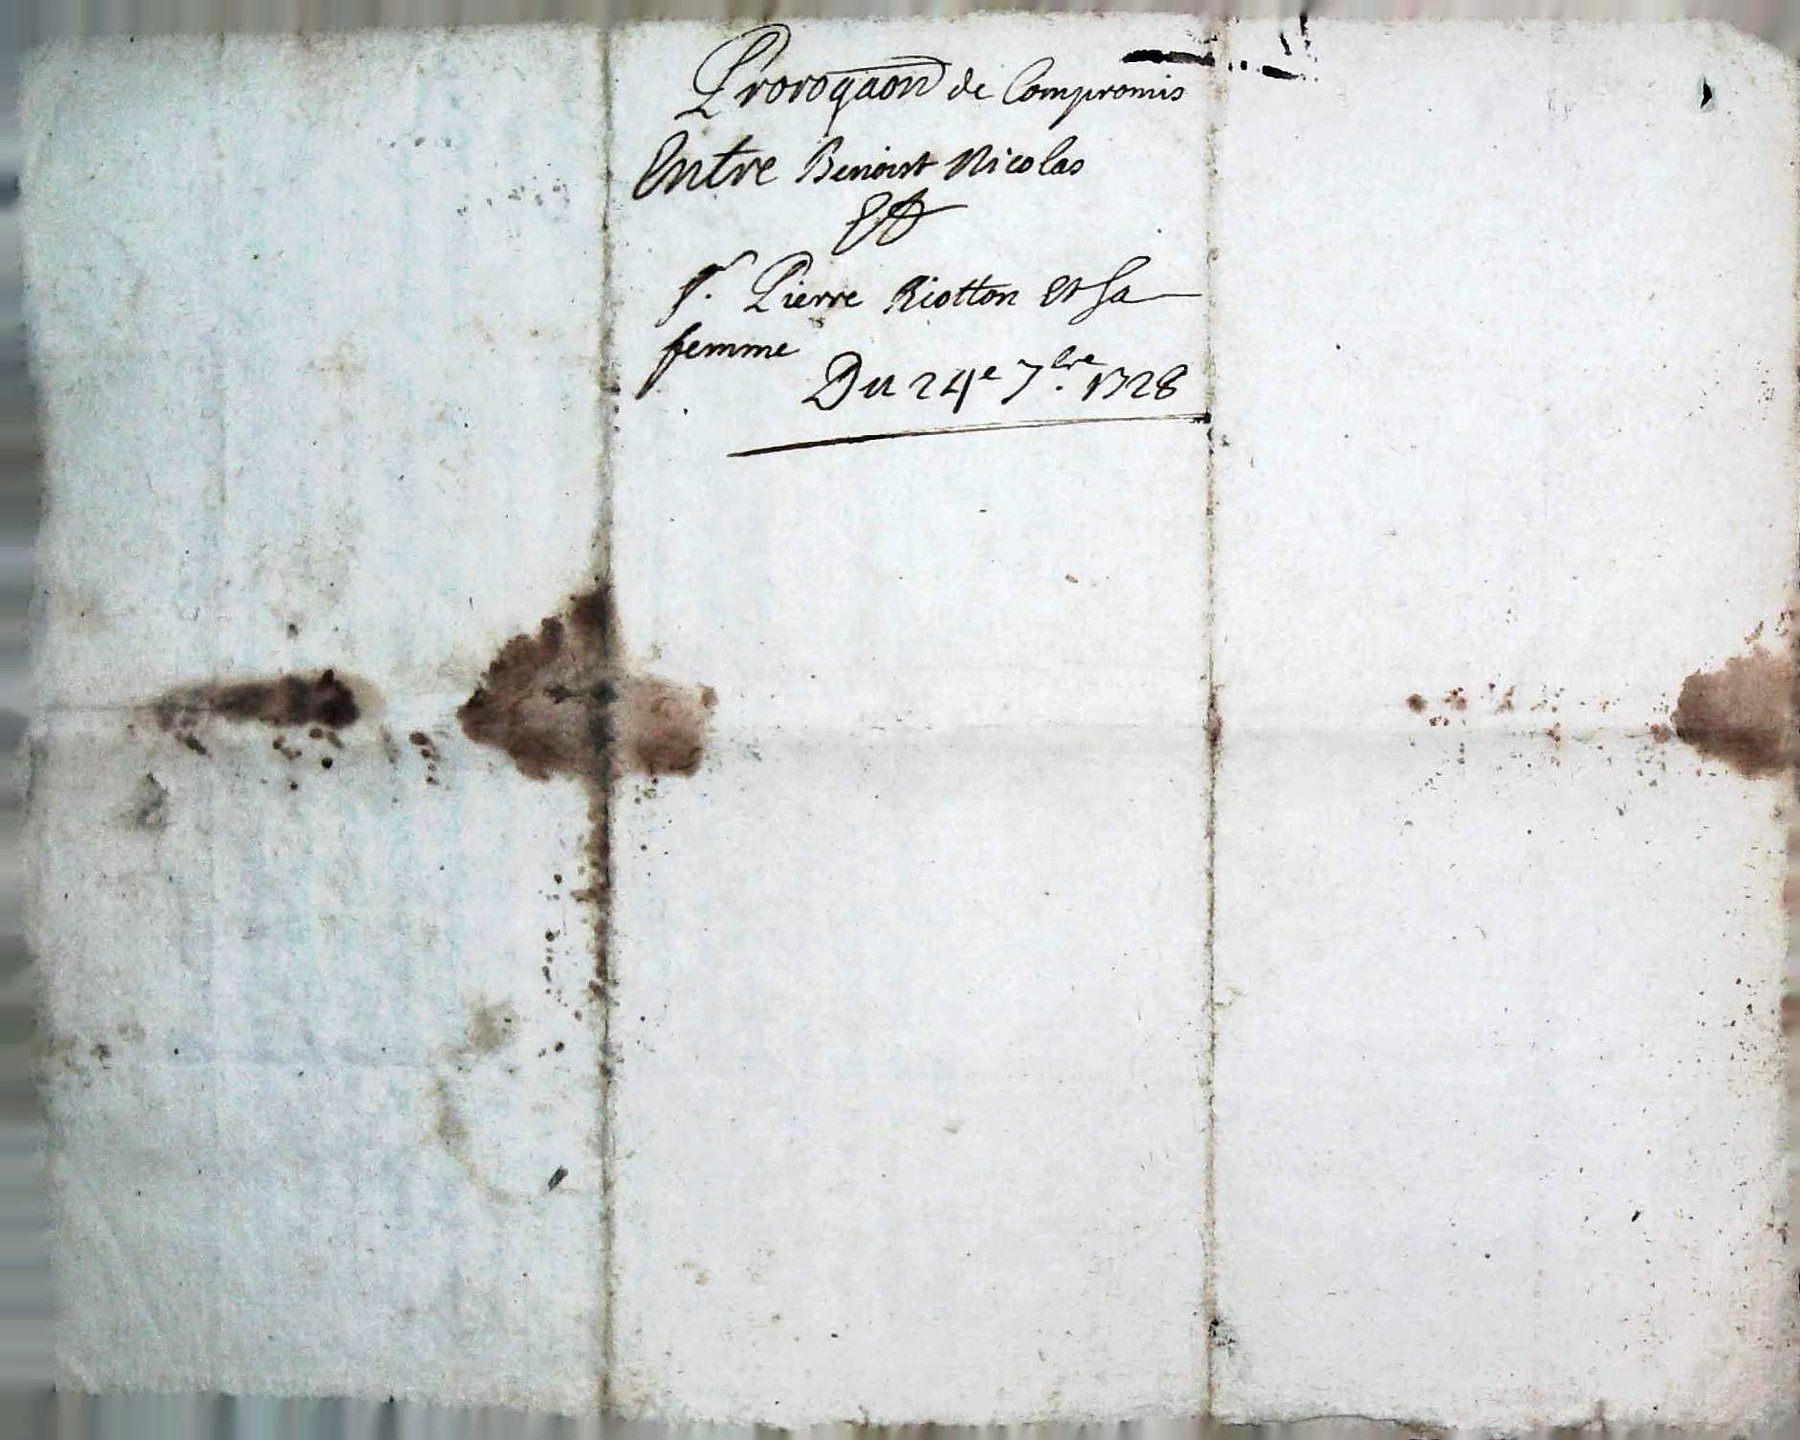 Prorogaon de Compromis
Entre Benoist Nicolas
Et
Sr. Pierre Riotton Et Sa
femme
Du 24e 7bre 1728